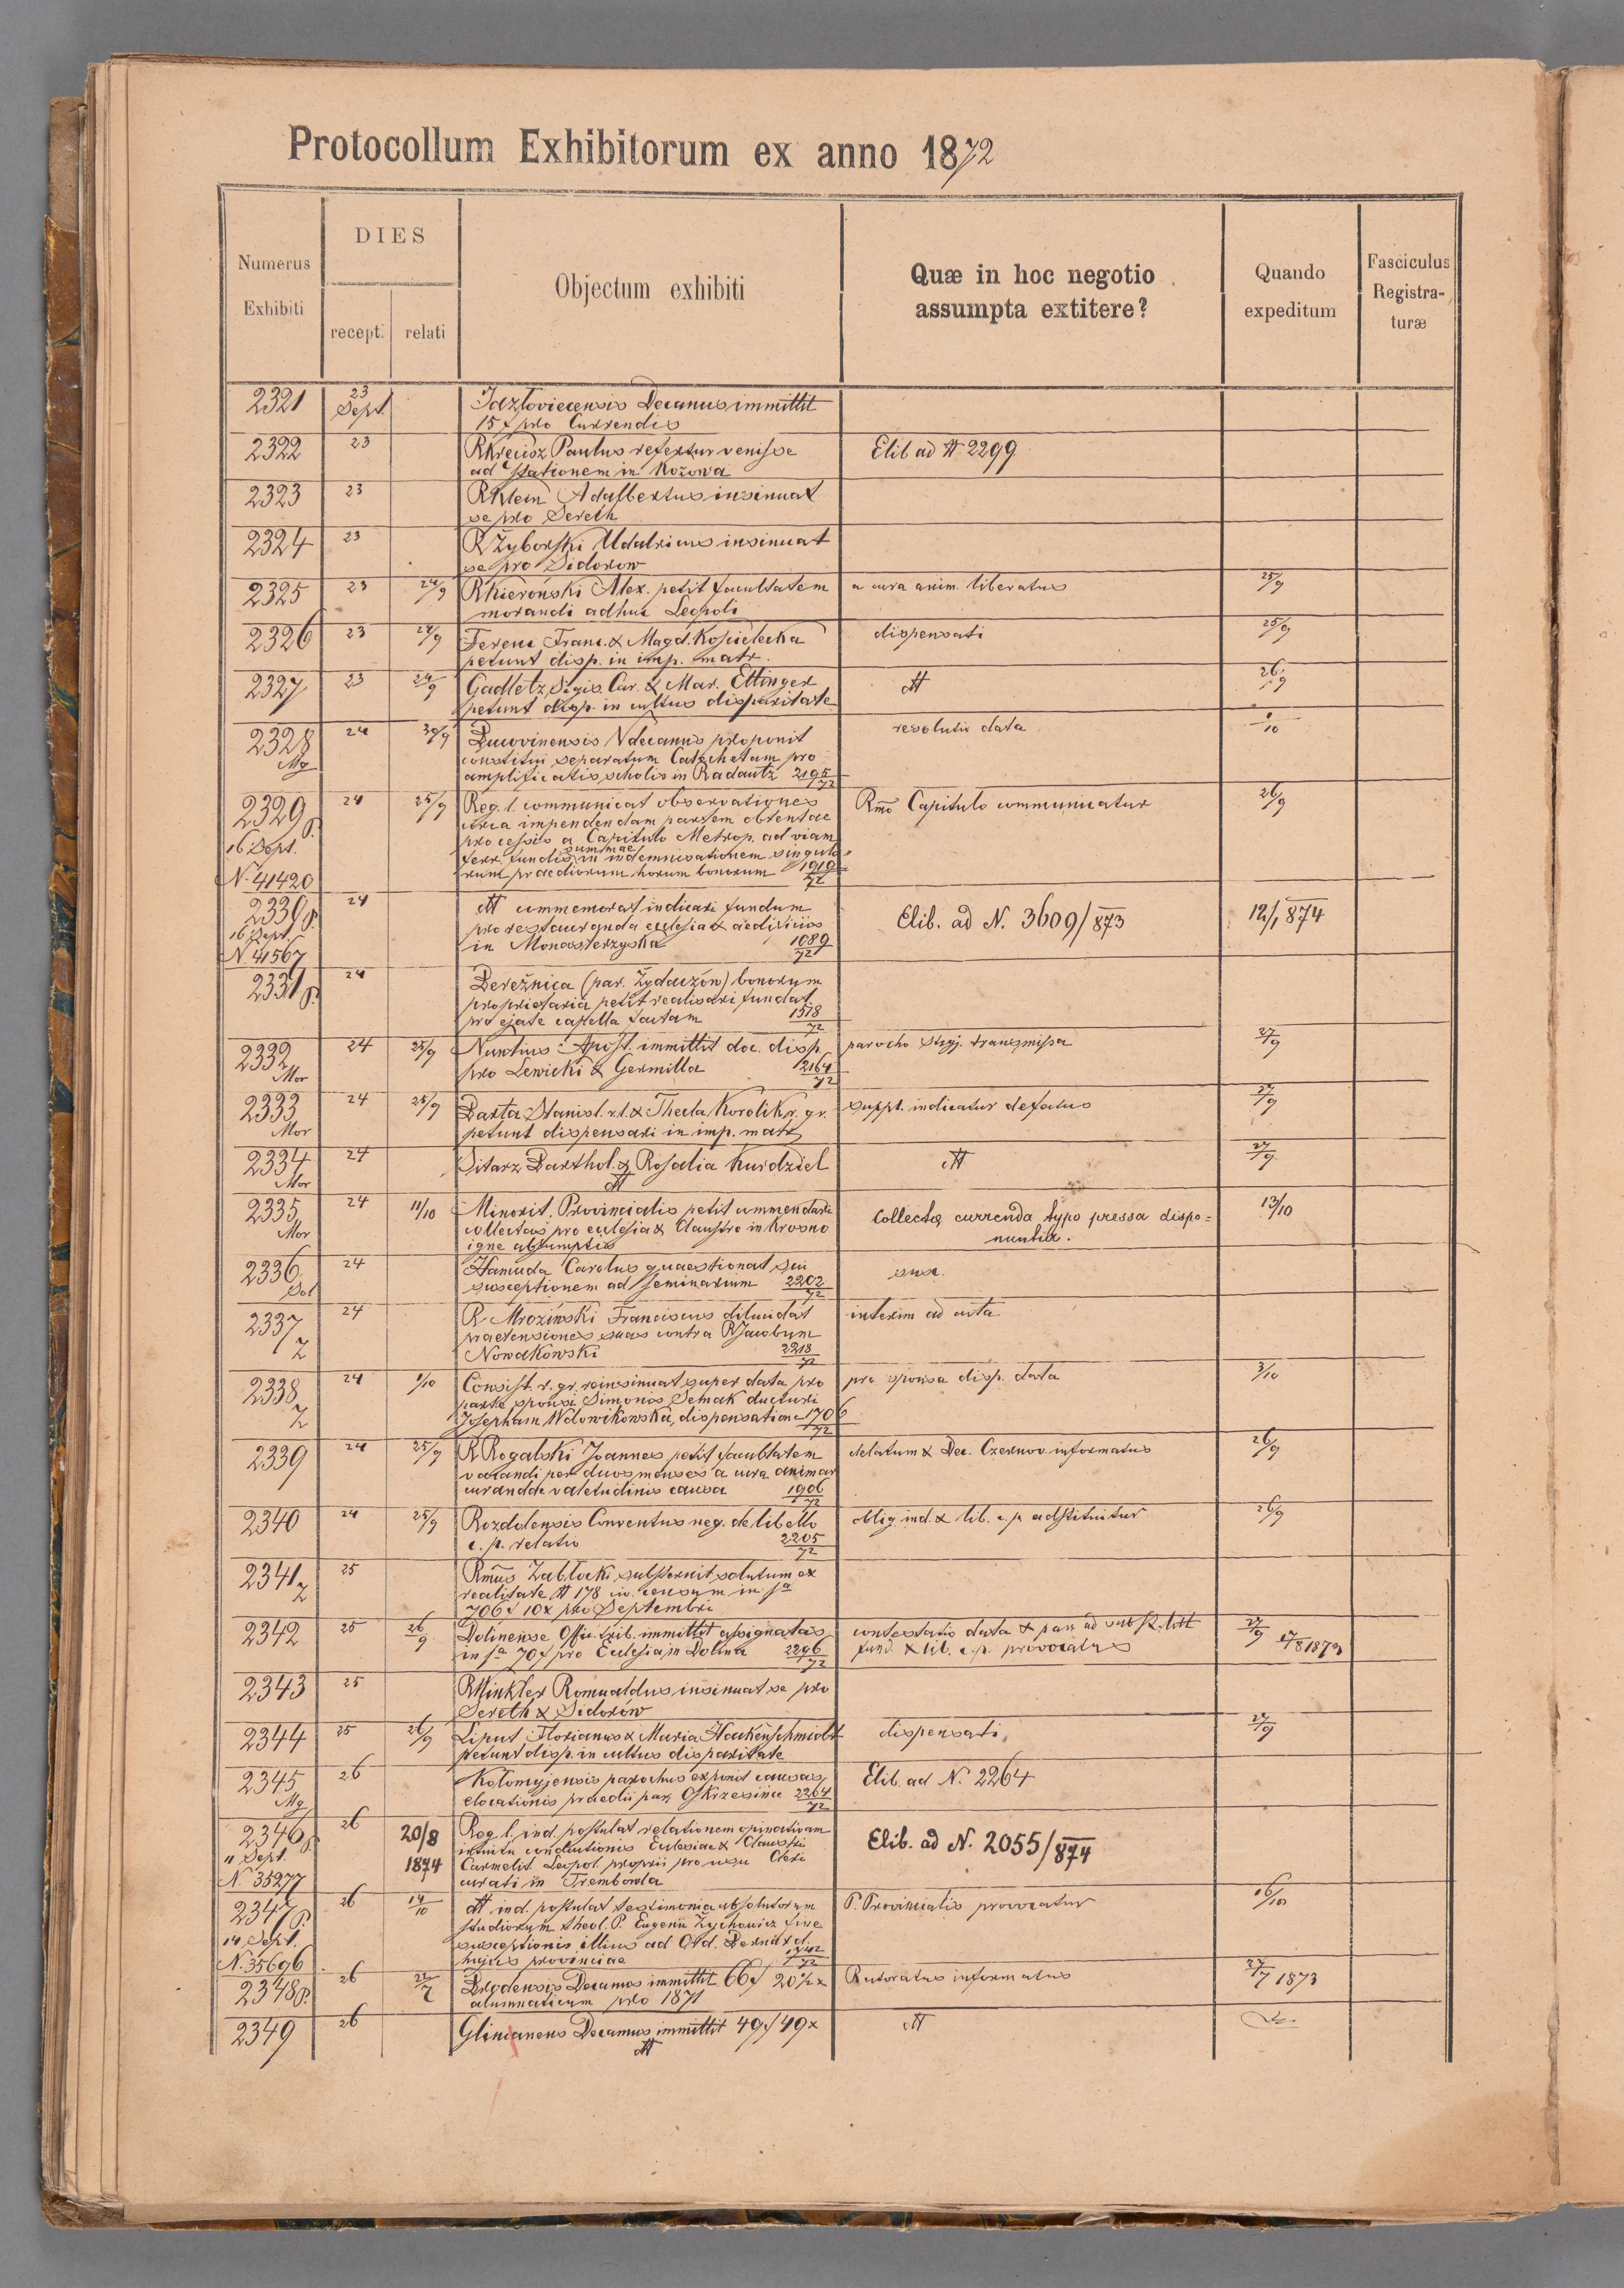 Protocollum Exhibitorum ex anno 1872
Numerus Exhibiti
DIES
recept.
relati
Objectum exhibiti
Quæ in hoc negotio
assumpta extitere?
Quando
expeditum
Fasciculus
Registra-
turæ
2321 23 Sept. Jazłoviecensis Decanus immittit
15 f pro Currendis
2322 23 Paulus refertur venisse Elib ad N 2299
ad stationem in Kozowa
2323 23 R Klein Adalbertus insinuat
se pro Sereth
2324 23 R Żyborski Udalricus insinuat
se pro Sidorow
2325 23 24/9 R Kieroński Alex. petit facultatem a cura anim. liberatus 25/9
morandi adhuc Leopoli
2326 23 24/9 Ferenc Franc. & Magd. Kościelecka dispensati 25/9
petunt disp. in imp. matr.
2327 23 24/9 Gadletz Sigis. Car. & Mar. Ettinger 26/9
petunt disp. in cultus disparitate
2328 24 30/9 Bucovinensis Vdecanus proponit resolutio data /10
Mg constitui separatum Catechetam pro
amplificatis scholis in Radautz 2195/72
2329 p. 24 25/9 Reg. l. communicat observationes Rmo Capitulo communicatur 26/9
16 Sept. circa impendendam partem obtentae
processis a Capitulo Metrop. ad viam
ferr. fundis in summae indemnisationem singulo-
N. 41420 rum praediorum horum bonorum 1919/72
2330 p. 24 commemorat indicari fundum Elib. ad N. 3609/873 12/1 874
16 Sept. pro restauranda ecclesia & aedificiis
N. 41567 in Monasterzyska 1089/72
2331 p. 24 Bereźnica (par. Żydaczów) bonorum
proprietaria petit realisari fundat.
pro ejate capella factam 1518/72
2332 24 25/9 Nuntius Apost. immittit doc. disp. parocho Stryj. transmissa 27/9
Mor pro Lewicki & Germilla 2164/72
2333 24 25/9 Barta Stanisl. r. l. & Thecla Korolik r. gr. suppt. indicatur defectus 27/9
Mor petunt dispensari in imp. matr
2334 24 Sitarz Barthol. & Rosalia Kurdziel 27/9
Mor
2335 24 11/10 Minorit. Provincialis petit commendari Collecta currenda typo pressa dispo= 13/10
Mor collectas pro ecclesia & Claustro in Krosno nuntiata.
igne absumptis
2336 24 Hamuda Carolus quaestionat sui
Sol susceptionem ad seminarium 2202/72
2337 24 R Mroziński Franciscus dilucidat interim ad acta
Z praetensiones suas contra R Jacobum
Nowakowski 2218/72
2338 24 1/10 Consist. r. gr. reinsinuat super data pro pro sponsa disp. data 3/10
Z parte sponsi Simonis Semak ducturi
Josepham Wdowikowska, dispensatione 1706/72
2339 24 25/9 R Rogalski Joannes petit facultatem delatum & Dec. Czernov. informatus 26/9
vacandi per duos menses a cura animar
curandae valetudinis causa 1906/72
2340 24 25/9 Rozdolensis Conventus neg. de libello oblig. ind. & lib. c. p. adstituitur 26/9
c. p. relatio 2205/72
2341 25 Rmus Zabłocki substernit solutum ex
Z realitate N 178 civ. censum in sa
706 f 10 x pro Septembri
2342 25 26/9 Dolinense Offic. trib. immittit assignatas contestatio data & par. ad subst. litt 27/9 17/8 1873
in sa 70 f pro Ecclesia in Dolina 2296/72 fund. & lib. c. p. provocatus
2343 25 R Winkler Romualdus insinuat se pro
Sereth & Sidorów
2344 25 26/9 Liput Florianus & Maria Hackenschmidt dispensati 27/9
petunt disp. in cultus disparitate
2345 26 Kołomyjensis parochus exponit causas Elib. ad N. 2264
Mg elocationis praedii par. Oskrzesińce 2264/72
2346 p. 26 20/8 1874 Reg. l. ind. postulat relationem opinativam Elib. ad N. 2055/874
11 Sept. intuitu conductionis Ecclesiae & Claustri
N. 35277 Carmelit. Leopol. proprii pro usu Cleri
curati in Trembowla
2347 p. 26 14/10 ind. postulat testimonia absolutorum P. Provincialis provocatur 16/10
14 Sept. studiorum theol. P. Eugenii Żychowicz fine
susceptionis illius ad Ord. Bernard.
N. 35696 hujus provinciae 1742/72
2348 p. 26 22/7 Brodensis Decanus immittit 66 f 20 1/2 x Rectoratus informatus 27/7 1873
alumnaticum pro 1871
2349 26 Glinianens Decanus immittit 49 f 49 x